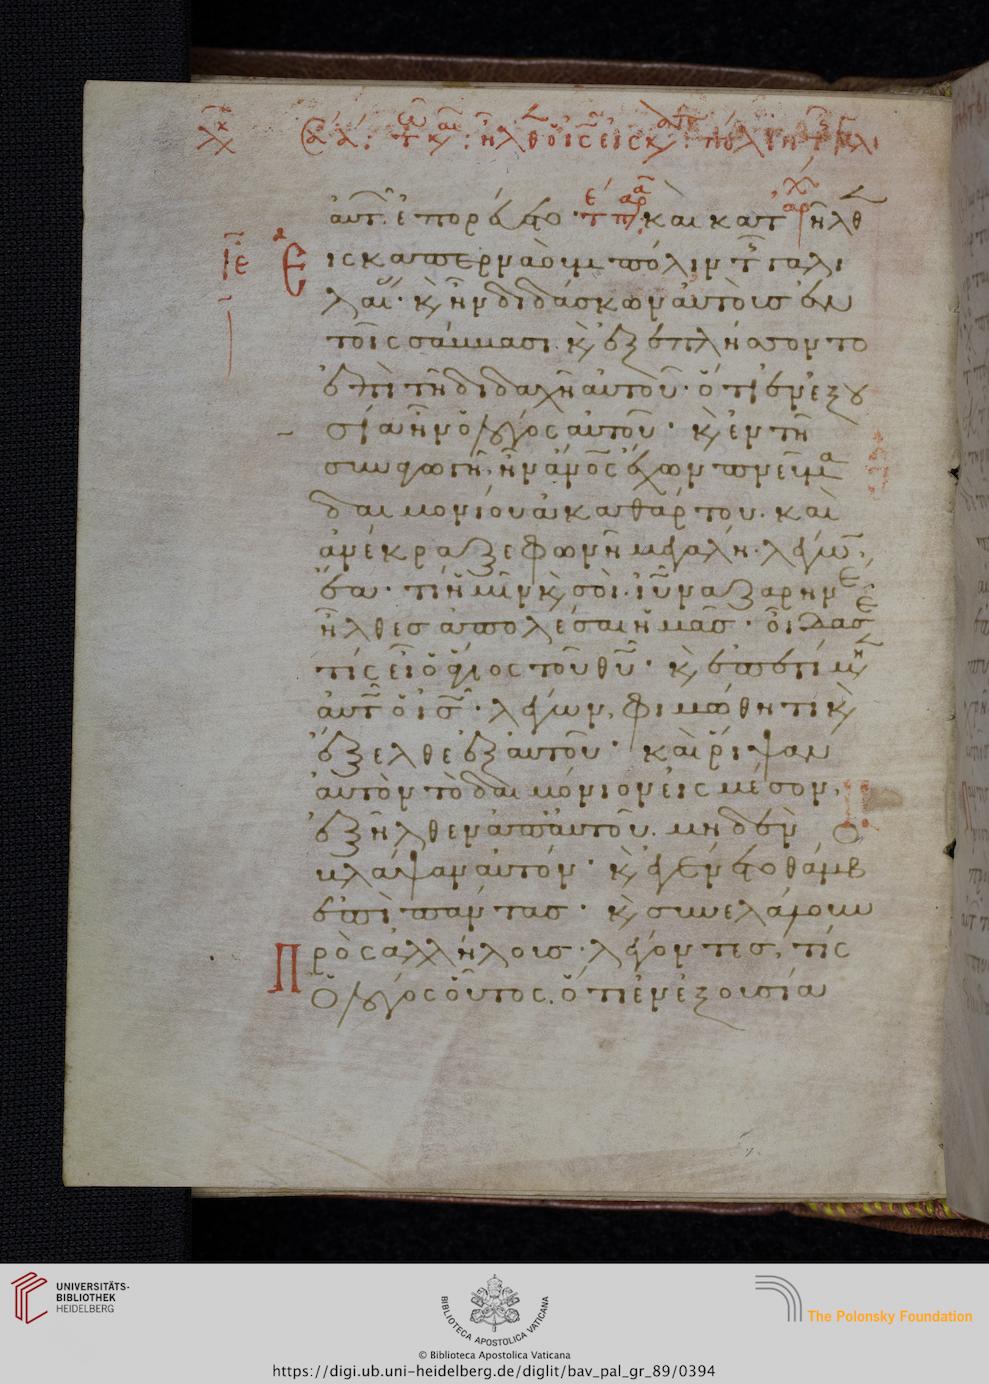 αὐτ ἐπορεύετο τ π καὶ κατ ῆλθ
ις καπερναοὺμ πόλιν τ γαλι
λαί· κ ἦν διδάσκων αὐτοὺς ἐν
τοῖς σάββασι. κ ἐξεπλήσσοντο
ἐπὶ τῆ διδαχῆ αὐτοῦ· ὅτι ἐν ἐξου
σία ἦν ὁ λόγος αὐτοῦ· κ ἐν τῆ
συναγωγῆ, ἦν ἄνος ἔχων πνεῦμα
δαιμονίου ἀκαθάρτου. καὶ
ἀνέκραξε φωνῆ μεγάλη· λέγων,
ἔα· τί ἡμῖν κ σοὶ. ιυ ναζαρηνέ
ἦλθες ἀπολέσαι ἡμᾶς· οἶδά σε
τίς εἶ ὁ ἅγιος τοῦ θυ· κ ἐπετίμη
αὐτ ὁ ις· λέγων, φιμώθητι κ
ἔξελθε ἐξ αὐτοῦ· καὶ ῥίψαν
αὐτὸν τὸ δαιμόνιον εἰς μέσον,
ἐξῆλθεν ἀπ' αὐτοῦ. μηδὲν
βλάψαν αὐτόν· κ ἐγένετο θάμβ
ἐπὶ πάντας· κ συνελάλουν
Πρὸς ἀλλήλους· λέγοντες, τίς
ὁ λόγος οὗτος. ὅτι ἐν ἐξουσία
UNIVERSITÄTS-
BIBLIOTHEK
HEIDELBERG
BIBLIOTECA APOSTOLICA VATICANA
The Polonsky Foundation
© Biblioteca Apostolica Vaticana
https://digi.ub.uni-heidelberg.de/diglit/bav_pal_gr_89/0394